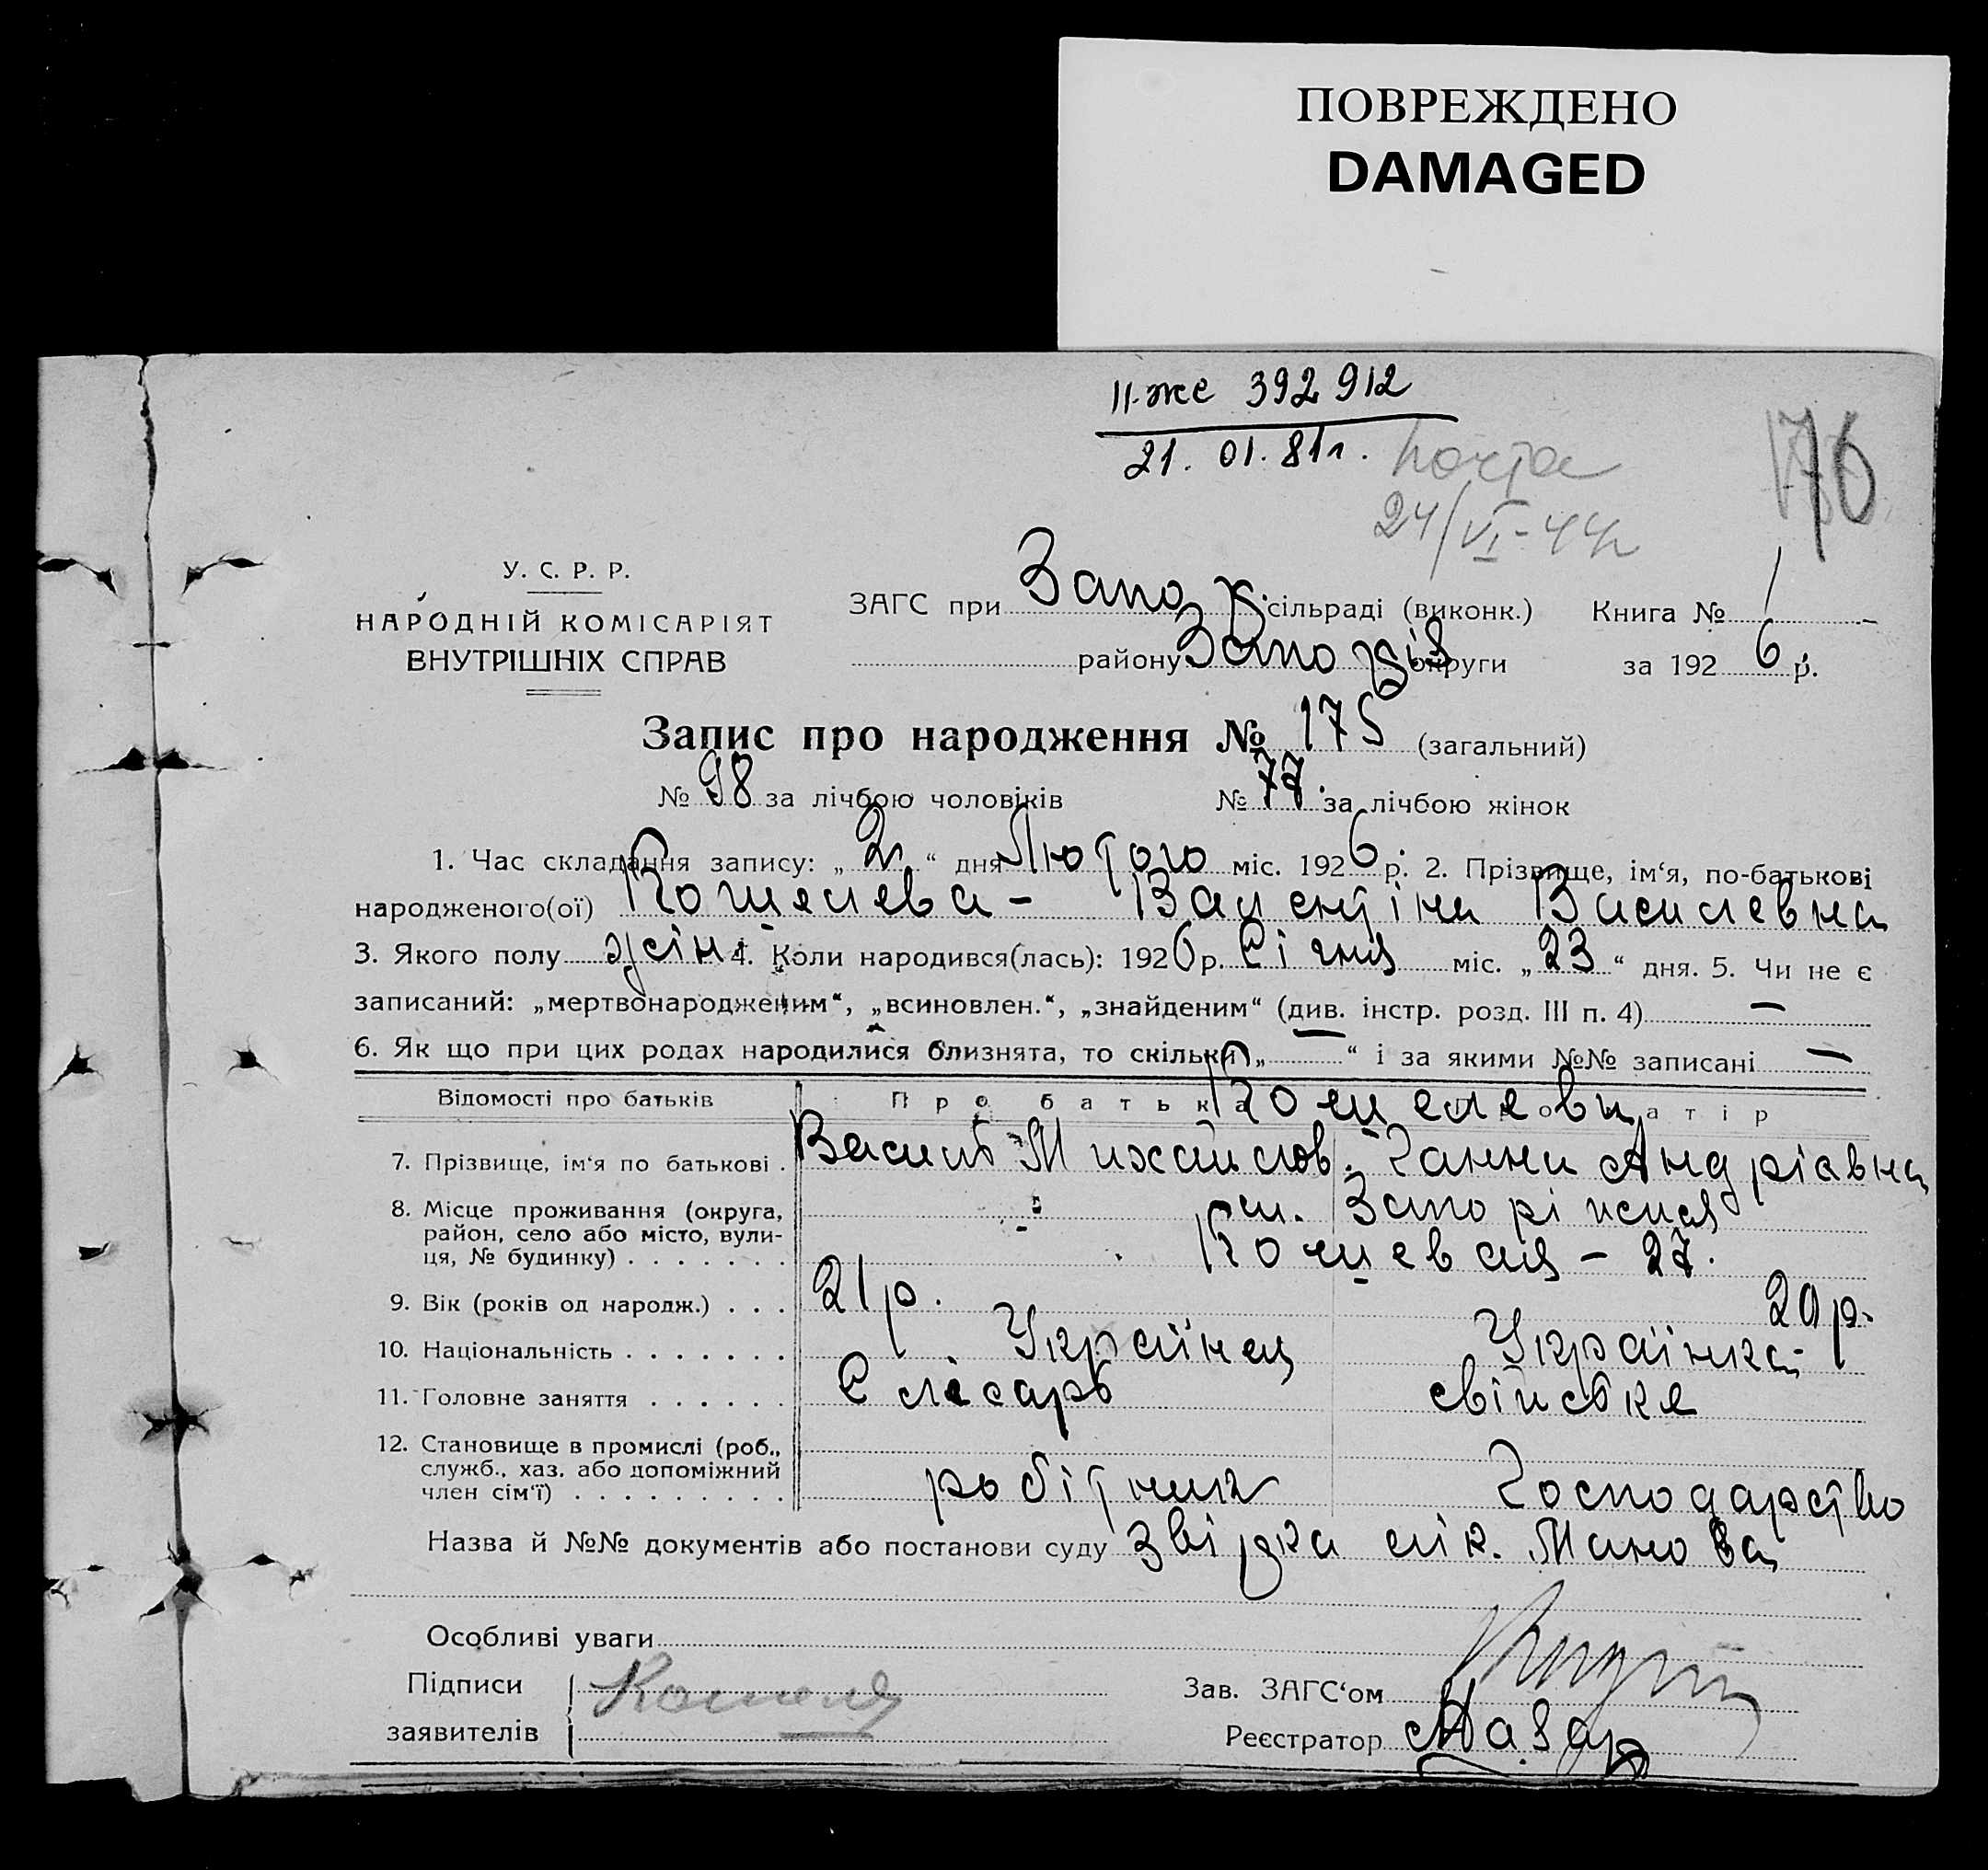 ПОВРЕЖДЕНО
DAMAGED
II-же 392912
21. 01. 81г. почта
24/VI-44р
176
У. С. Р. Р.
НАРОДНІЙ КОМІСАРІЯТ
ВНУТРІШНІХ СПРАВ
ЗАГС при Запор. сільраді (виконк.) Книга № 1
району Запоріз округи за 1926 р.
Запис про народження № 175 (загальний)
№ 98 за лічбою чоловіків № 77. за лічбою жінок
1. Час складання запису: „2“ дня Лютого міс. 1926 р. 2. Прізвище, ім‘я, по-батькові
народженого(ої) Кошелева - Валентіна Василевна
3. Якого полу жін 4. Коли народився(лась): 1926 р. Січня міс. „23“ дня. 5. Чи не є
записаний: „мертвонародженим“, „всиновлен.“, „знайденим“ (див. інстр. розд. III п. 4) —
6. Як що при цих родах народилися близнята, то скільки „—“ і за якими №№ записані —
Відомості про батьків Про батька Про матір
Кошелеви
7. Прізвище, ім‘я по батькові . Василь Михайлов. Ганна Андріавна
8. Місце проживання (округа, район, село або місто, вули-ця, № будинку) . . . . . . . м. Запоріжжя
27.
9. Вік (років од народж.) . . . 21 р. 20 р.
10. Національність . . . . . . . Українец Українка
11. Головне заняття . . . . . . Слісарь свійське
12. Становище в промислі (роб., служб., хаз. або допоміжний член сім‘ї) . . . . . . . . . робітник Господарство
Назва й №№ документів або постанови суду Звідка лік. Манова
Особливі уваги
Підписи заявителів Кошеля
Зав. ЗАГС‘ом
Реєстратор Назар